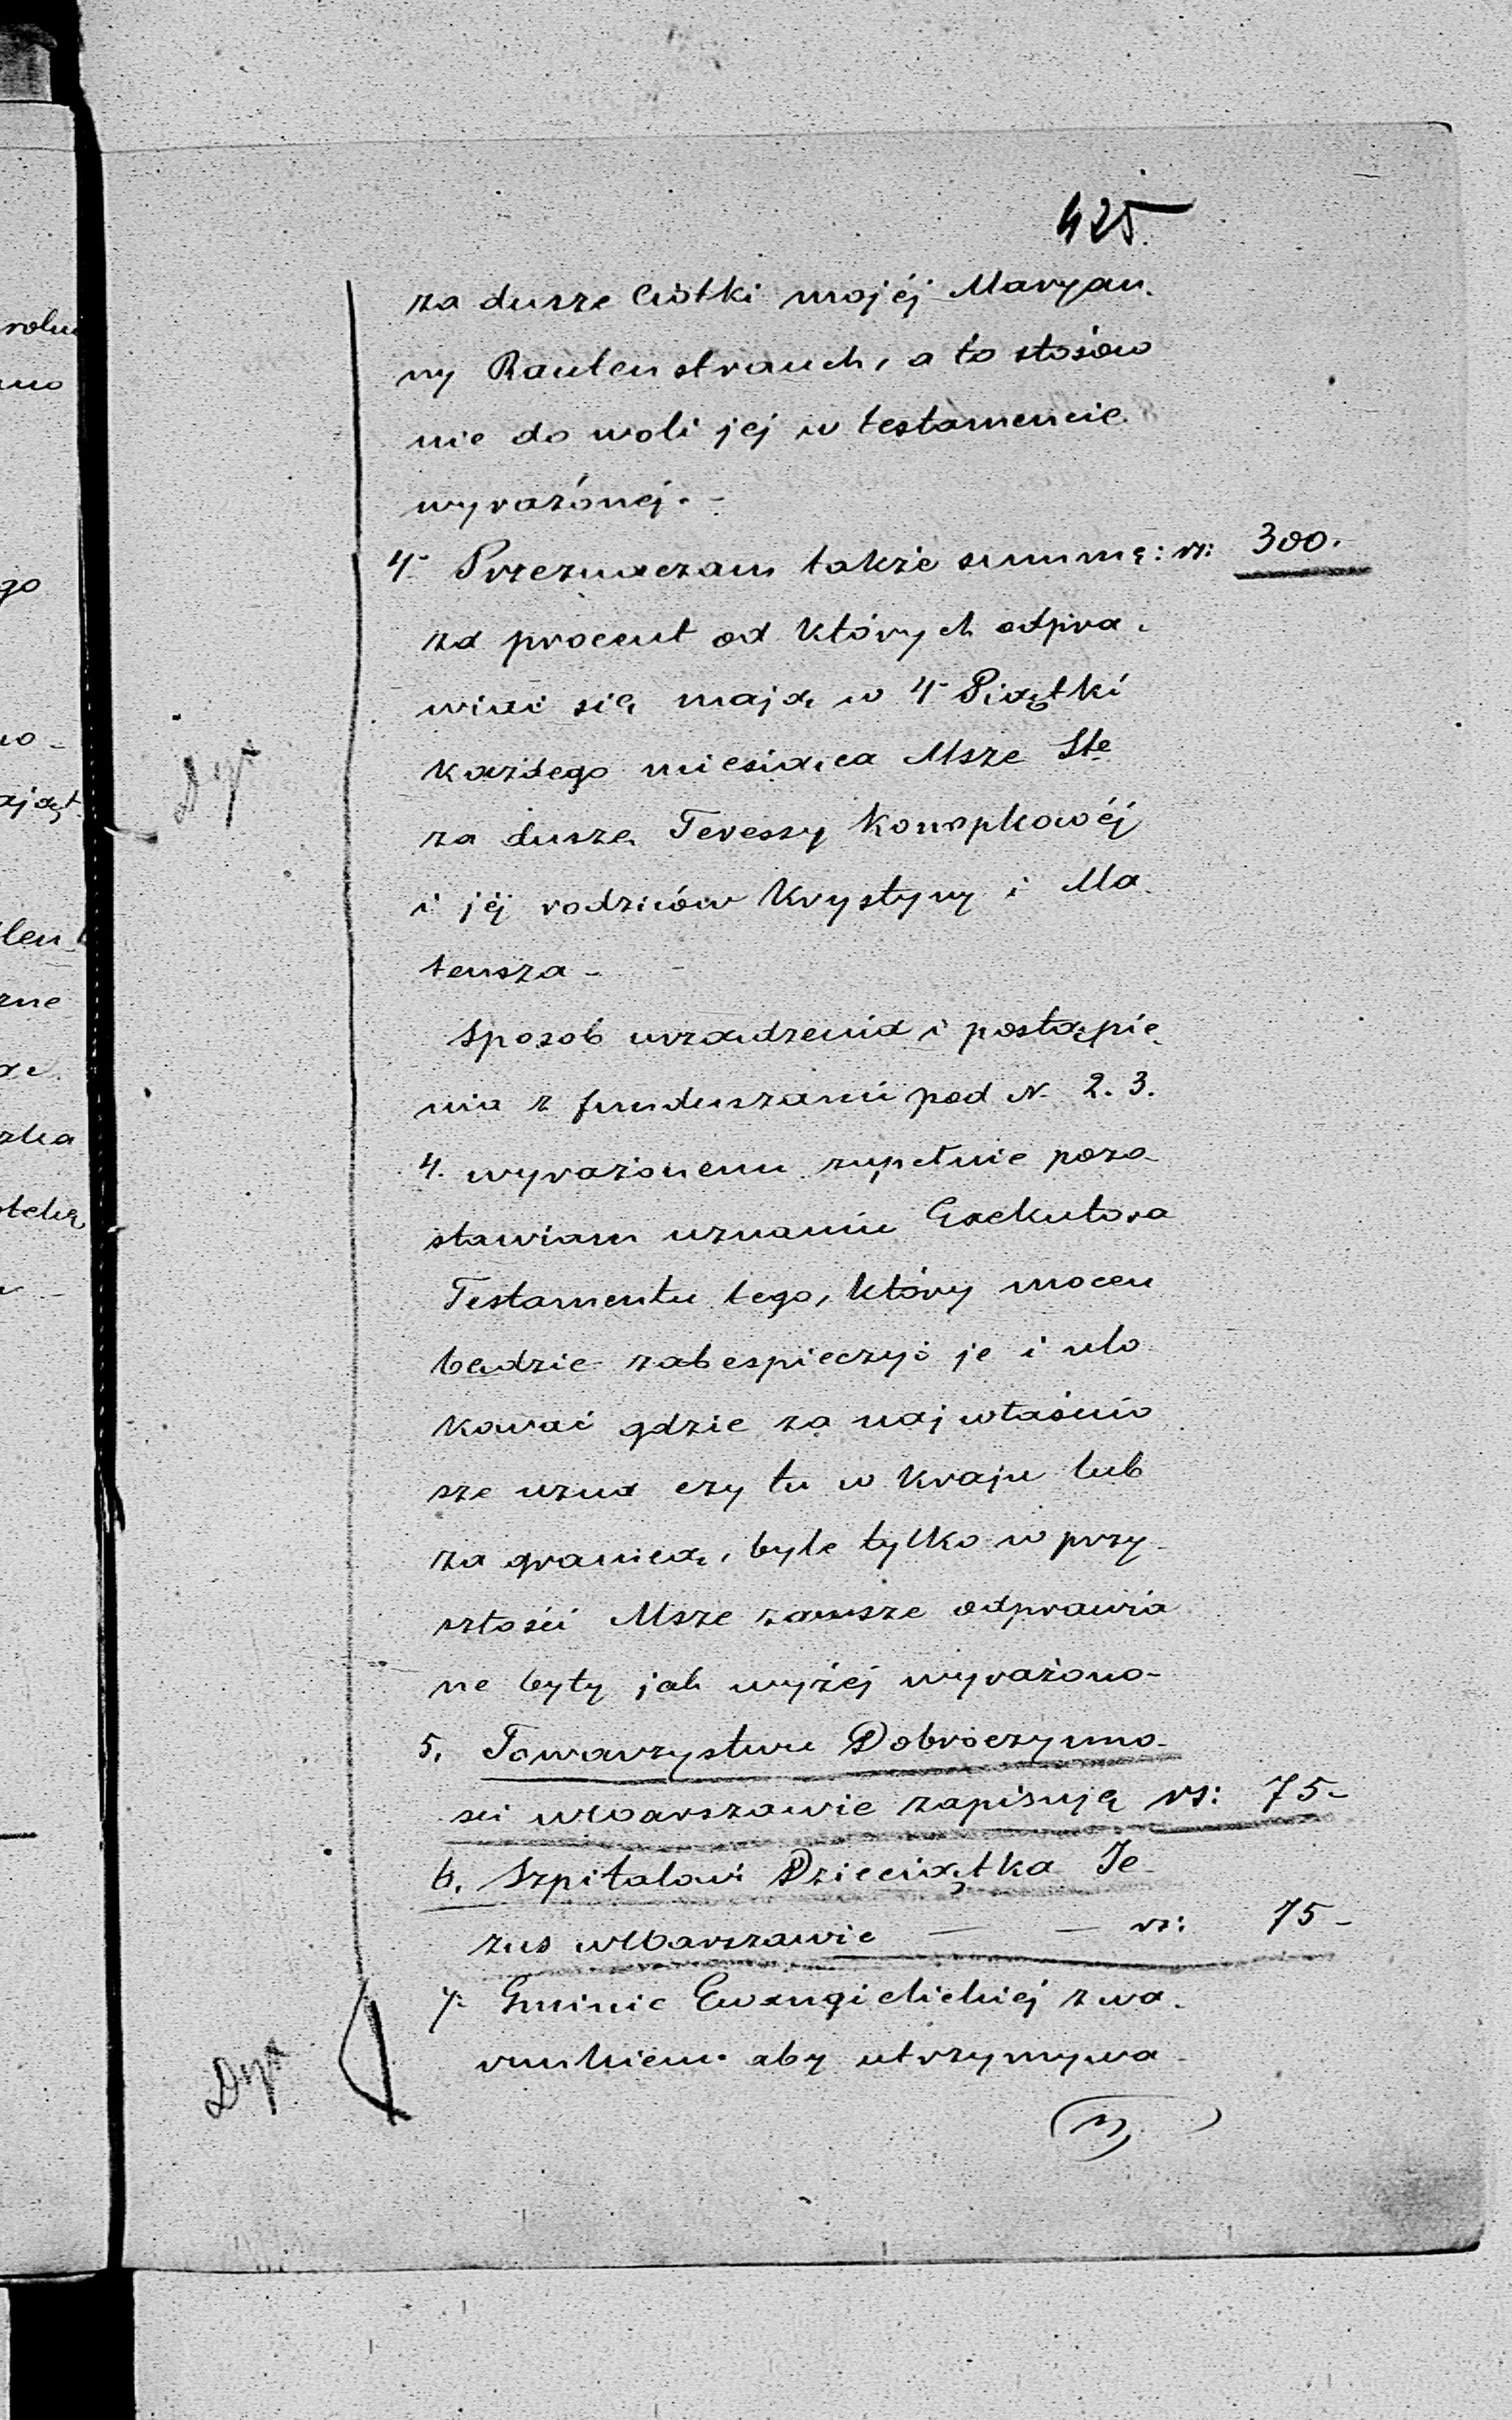 425.
za dusze Ciotki mojéj Maryan-
ny Rautenstrauch, a to stósow
nie do woli jej w testamencie
wyrażonéj. -
4- Przeznaczam także summę: rs: 300.
za procent od których odpra-
wiać się mają w 4 Piątki
każdego miesiąca Msze Ste
za duszę Teressy Konopkowéj
i jéj rodziców Krystyny i Ma
teusza -
Sposób urządzenia i postąpie
nia z funduszami pod N. 2. 3.
4. wyrażonemu zupełnie pozo-
stawiam uznaniu Exekutora
Testamentu tego, który mocen
będzie zabespieczyć je i ulo
kować gdzie za najwłaściw
sze uzna czy tu w Kraju lub
za granicą, byle tylko w przy-
szłości Msze zawsze odprawia
ne były jak wyżéj wyrażono-
5. Towarzystwu Dobroczynno-
sci w Warszawie zapisuję rs: 75-
6. Szpitalowi Dzieciątka Je-
zus w Warszawie — — rs: 75-
7. Gminie Ewangielickiej z wa-
runkiem aby utrzymywa-